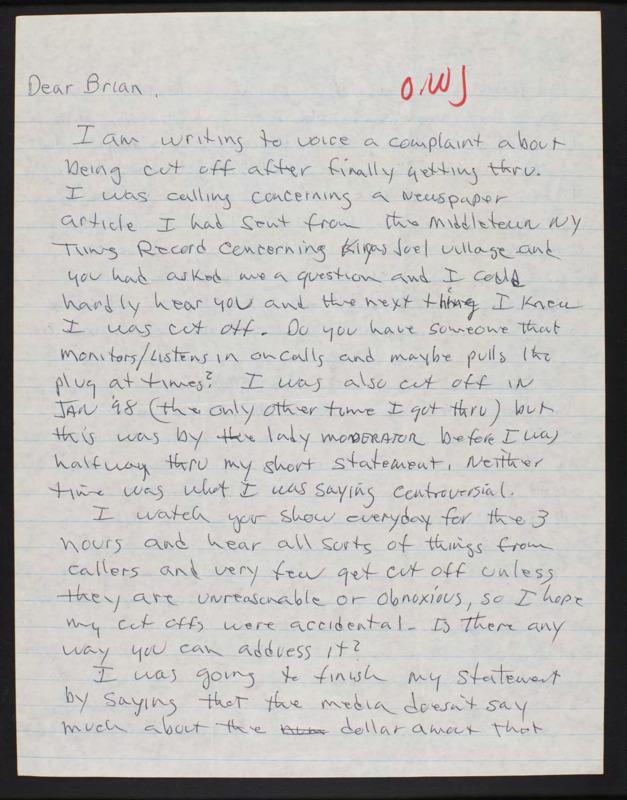 Dear Brian,
O.WJ
I am writing to voice a complaint about
being cut off after finally getting thru.
I was calling concerning a newspaper
article I had sent from the Middletown NY
Times Record concerning Kiryas Joel village and
you had asked me a question and I could
hardly hear you and the next thing I knew
I was cut off. Do you have someone that
monitors/listens in on calls and maybe pulls the
plug at times? I was also cut off in
JAN '98 (the only other time I got thru) but
this was by the lady MODERATOR before I was
halfway thru my short statement. Neither
time was what I was saying controversial.
I watch your show everyday for the 3
hours and hear all sorts of things from
callers and very few get cut off unless
they are unreasonable or obnoxious, so I hope
my cut offs were accidental. Is there any
way you can address it?
I was going to finish my statement
by saying that the media doesn't say
much about the dollar amount that